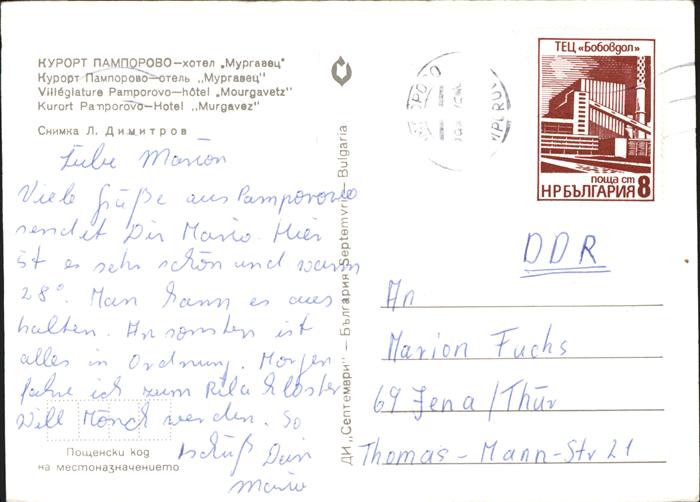 КУРОРТ ПАМПОРОВО—хотел „Мургавец"
Курорт Пампорово—отель „Мургавец"
Villégiature Pamporovo—hôtel „Mourgavetz"
Kurort Pamporovo-Hotel „Murgavez"
Снимка Л. Димитров
Liebe Marion
Viele Grüße aus Pamporovo
sendet Dir Mario. Hier
ist es sehr schön und warm
28°. Man kann es aus
halten. Ansonsten ist
alles in Ordnung. Morgen
fahre ich zum Rila Kloster
Will Mönch werden. So
tschüß Dein
Mario
Пощенски код
на местоназначението
ДИ „Септември" — България Septemvri — Bulgaria
ТЕЦ «Бобовдол»
поща ст
НРБЪЛГАРИЯ 8
DDR
An
Marion Fuchs
69 Jena/Thür
Thomas-Mann-Str 21